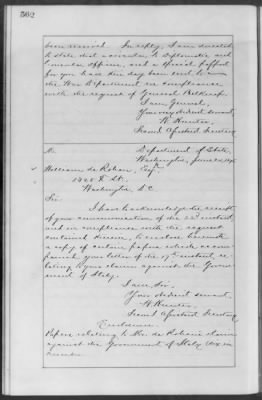 562
been received. In reply, I am directed
to state that a circular to Diplomatic and
Consular Officers, and a special passport
for you have this day been sent to
the War Department in compliance
with the request of General Belknap.
I am, General,
Your very obedient servant,
W. Hunter,
Second Assistant Secretary
Department of State,
Washington, June
William de Rohan, Esqr
1420 Str.
Washington, D.C.
Sir:
I have to acknowledge the receipt
of your communication of the 22d instant,
and in compliance with the request
contained therein, to enclose herewith
a copy of certain papers which accom-
panied your letter of the 17th instant, re-
lating to your claim against the Govern-
ment of Italy.
I am, Sir,
Your obedient servant,
W. Hunter,
Second Assistant Secretary
Enclosure.
Papers relating to Mr. de Rohan's claim
against the Government of Italy, six in
number